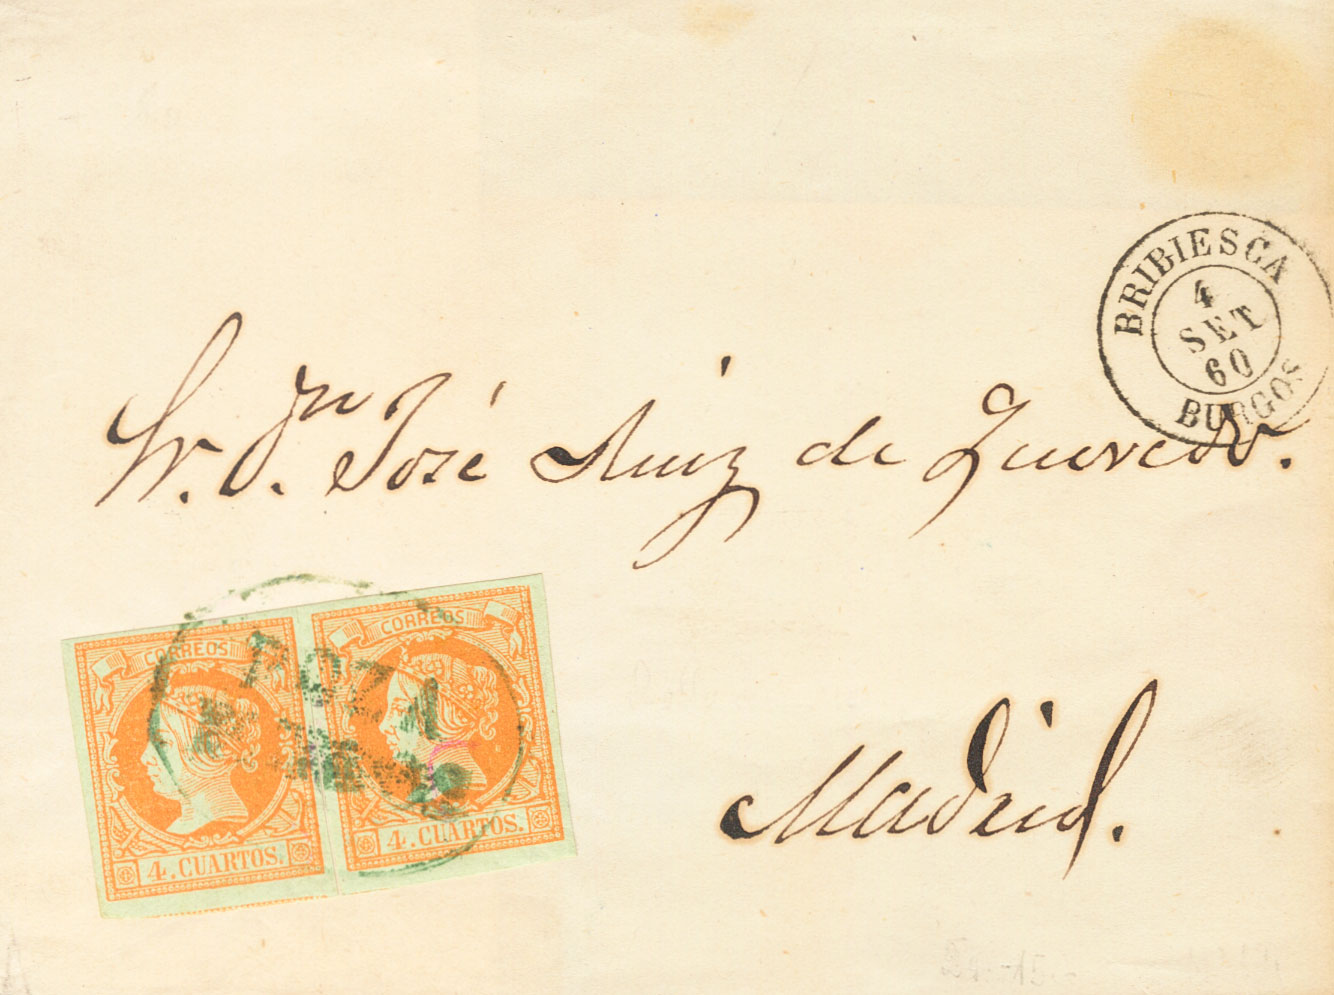 BRIBIESCA
4
SET
60
BURGOS
Sr. Dn. José Ruiz de Quevedo.
CORREOS
CORREOS
POZA
4. CUARTOS.
4. CUARTOS.
Madrid.